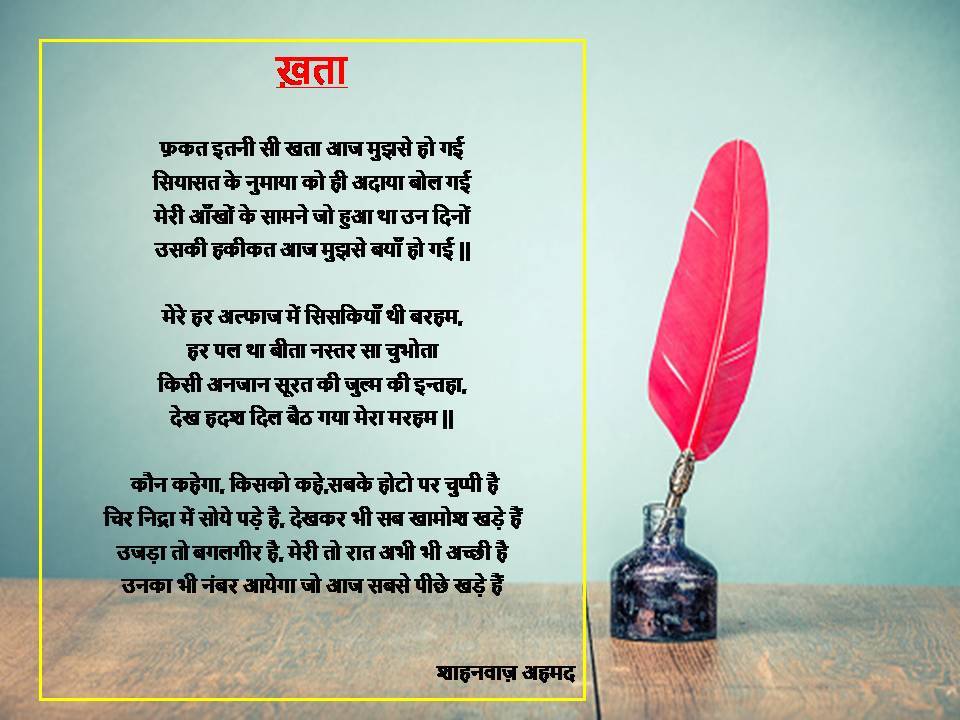 ख़ता
फ़कत इतनी सी खता आज मुझसे हो गई
सियासत के नुमाया को ही अदाया बोल गई
मेरी आँखों के सामने जो हुआ था उन दिनों
उसकी हकीकत आज मुझसे बयाँ हो गई ||
मेरे हर अल्फाज में सिसकियाँ थी बरहम,
हर पल था बीता नस्तर सा चुभोता
किसी अनजान सूरत की जुल्म की इन्तहा,
देख हदश दिल बैठ गया मेरा मरहम ||
कौन कहेगा, किसको कहे,सबके होटो पर चुप्पी है
चिर निद्रा में सोये पड़े है, देखकर भी सब खामोश खड़े हैं
उजड़ा तो बगलगीर है, मेरी तो रात अभी भी अच्छी है
उनका भी नंबर आयेगा जो आज सबसे पीछे खड़े हैं
शाहनवाज़ अहमद